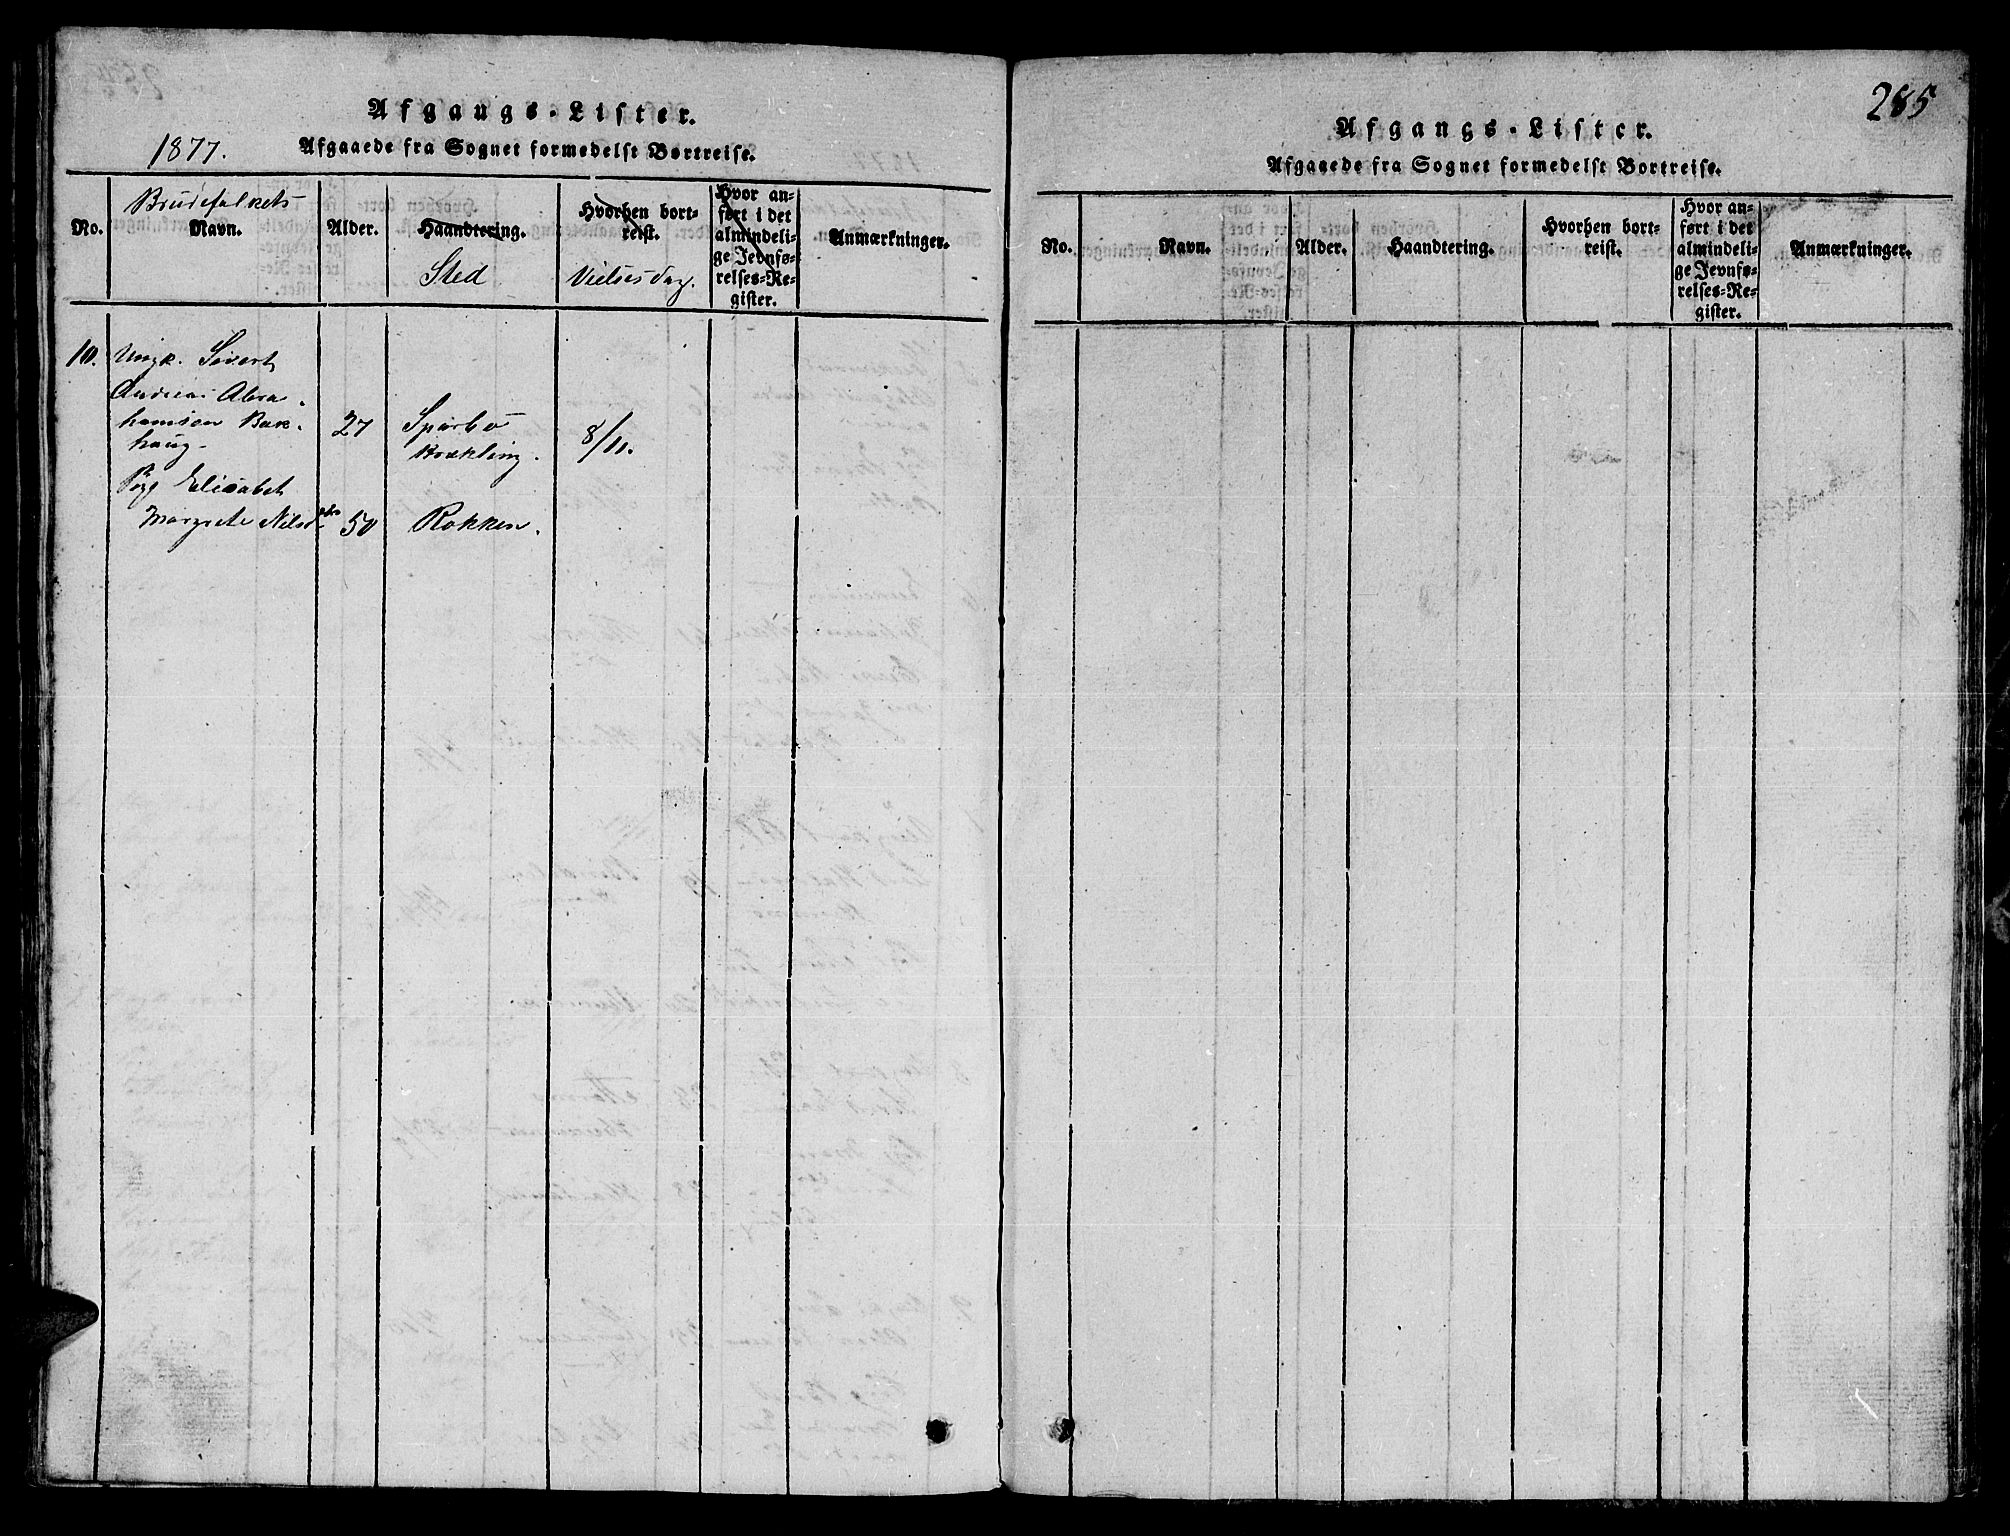 Afgangs-Lister.
1877.
Afgaaede fra Sognet formedelst Bortreise.
No.
Brudefolkets
Navn.
Alder.
Haandtering.
Sted
Hvorhen bort-
reist.
Vielsesdag.
Hvor an-
ført i det
almindeli-
ge Jevnfø-
relses-Re-
gister.
Anmærkninger.
10. Ungk. Sivert
Andreas Abra
hamsen Bak-
haug
27 Sparbo 8/11.
Pige Elisabet
Margrete Nilsd 50 Rokken.
285
Afgangs-Lister.
Afgaaede fra Sognet formedelst Bortreise.
No.
Navn.
Alder.
Haandtering.
Hvorhen bort-
reist.
Hvor an-
ført i det
almindeli-
ge Jevnfø-
relses-Re-
gister.
Anmærkninger.